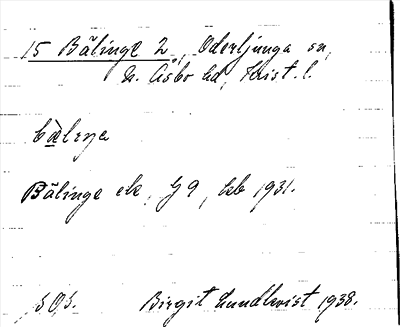 15 Bälinge 2, Oderljunga sn,
N. Åsbo hd, Krist. l.
Bälinge ek, G 9, kb 1931.
SOS. Birgit Lundkvist 1938.